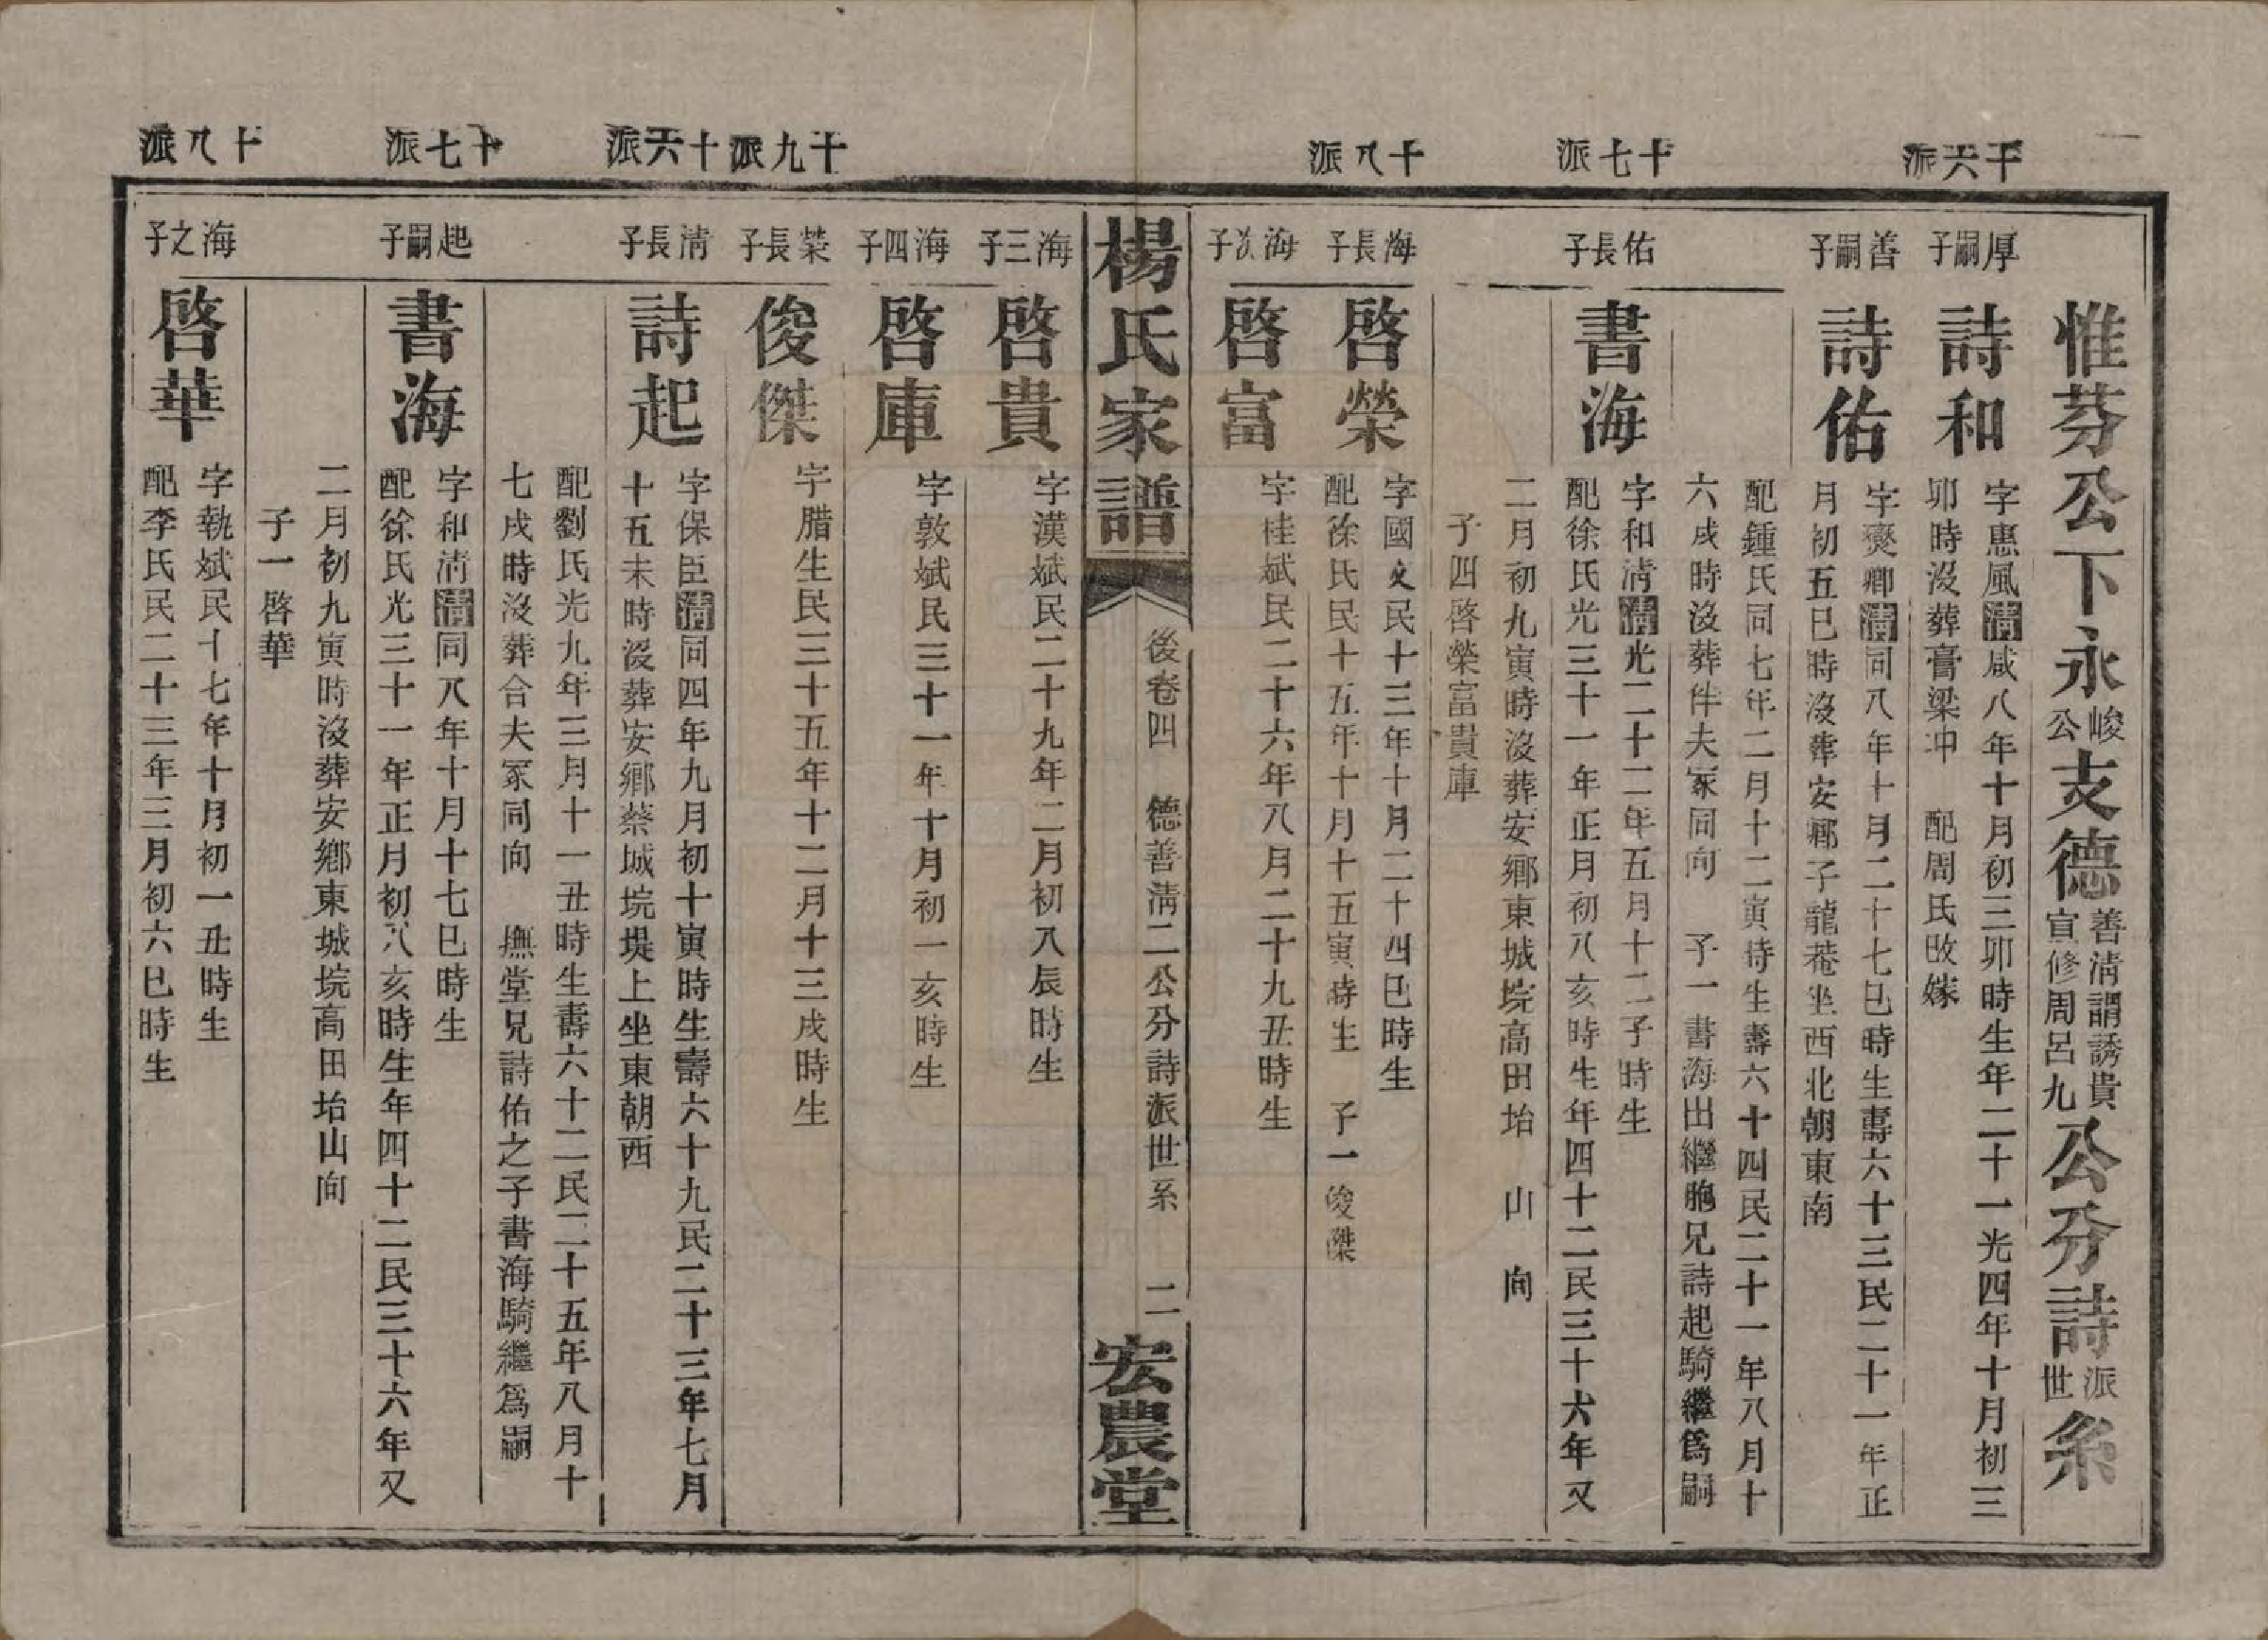 十六派
十七派
十八派
惟芬公下永峻公支德善清謂誘貴宣修周呂九公分詩派世系
厚嗣子
詩和
字惠風清咸八年十月初三卯時生年二十一光四年十月初三
卯時沒葬膏梁冲 配周氏改嫁
善嗣子
詩佑
字爕卿清同八年十月二十七巳時生壽六十三民二十一年正
月初五巳時沒葬安鄉子龍菴坐西北朝東南
配鍾氏同七年二月十二寅時生壽六十四民二十一年八月十
六戌時沒葬伴夫冢同向 子一書海出繼胞兄詩起騎繼爲嗣
佑長子
書海
字和清清光二十二年五月十二子時生
配徐氏光三十一年正月初八亥時生年四十二民三十六年又
二月初九寅時沒葬安鄉東城垸高田坮 山 向
子四啓榮富貴庫
海長子
啓榮
字國文民十三年十月二十四巳時生
配徐氏民十五年十月十五寅時生 子一俊傑
海次子
啓富
字桂斌民二十六年八月二十九丑時生
楊氏家譜 後卷四 德善清二公分詩派世系 二 宏農堂
十九派
十六派
十七派
十八派
海三子
啓貴
字漢斌民二十九年二月初八辰時生
海四子
啓庫
字敦斌民三十一年十月初一亥時生
榮長子
俊傑
字腊生民三十五年十二月十三戌時生
清長子
詩起
字保臣清同四年九月初十寅時生壽六十九民二十三年七月
十五未時沒葬安鄉蔡城垸堤上坐東朝西
配劉氏光九年三月十一丑時生壽六十二民二十五年八月十
七戌時沒葬合夫冢同向 撫堂兄詩佑之子書海騎繼爲嗣
起嗣子
書海
字和清清同八年十月十七巳時生
配徐氏光三十一年正月初八亥時生年四十二民三十六年又
二月初九寅時沒葬安鄉東城垸高田坮山向
子一啓華
海之子
啓華
字執斌民十七年十月初一丑時生
配李氏民二十三年三月初六巳時生